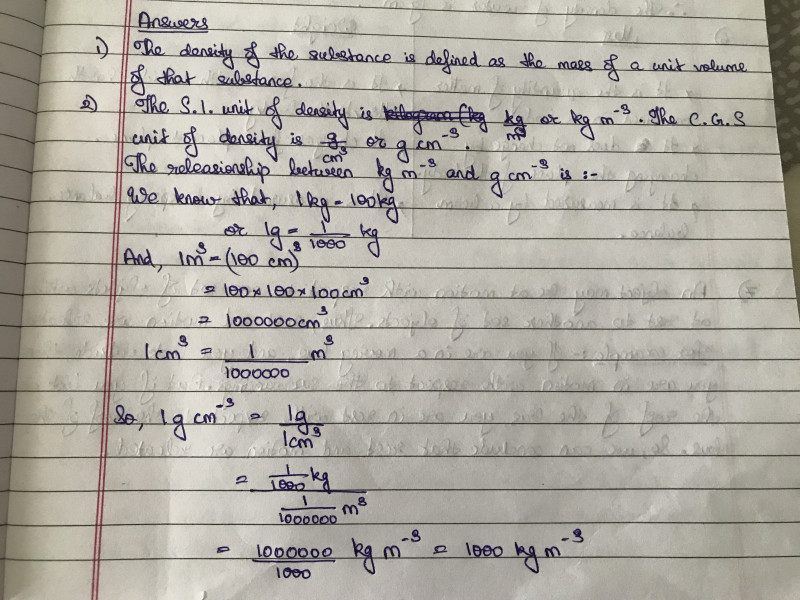 Answers
1) The density of the substance is defined as the mass of a unit volume
of that substance.
2) The S.I. unit of density is kilogram (kg kg/m³ or kg m⁻³. The C.G.S
unit of density is g/cm³ or g cm⁻³.
The releasionship between kg m⁻³ and g cm⁻³ is :-
We know that, 1kg = 100kg
or 1g = 1/1000 kg
And, 1m³ = (100 cm)³
= 100 × 100 × 100cm³
= 1000000cm³
1cm³ = 1/1000000 m³
So, 1g cm⁻³ = 1g/1cm³
= 1/1000 kg / 1/1000000 m³
= 1000000/1000 kg m⁻³ = 1000 kg m⁻³